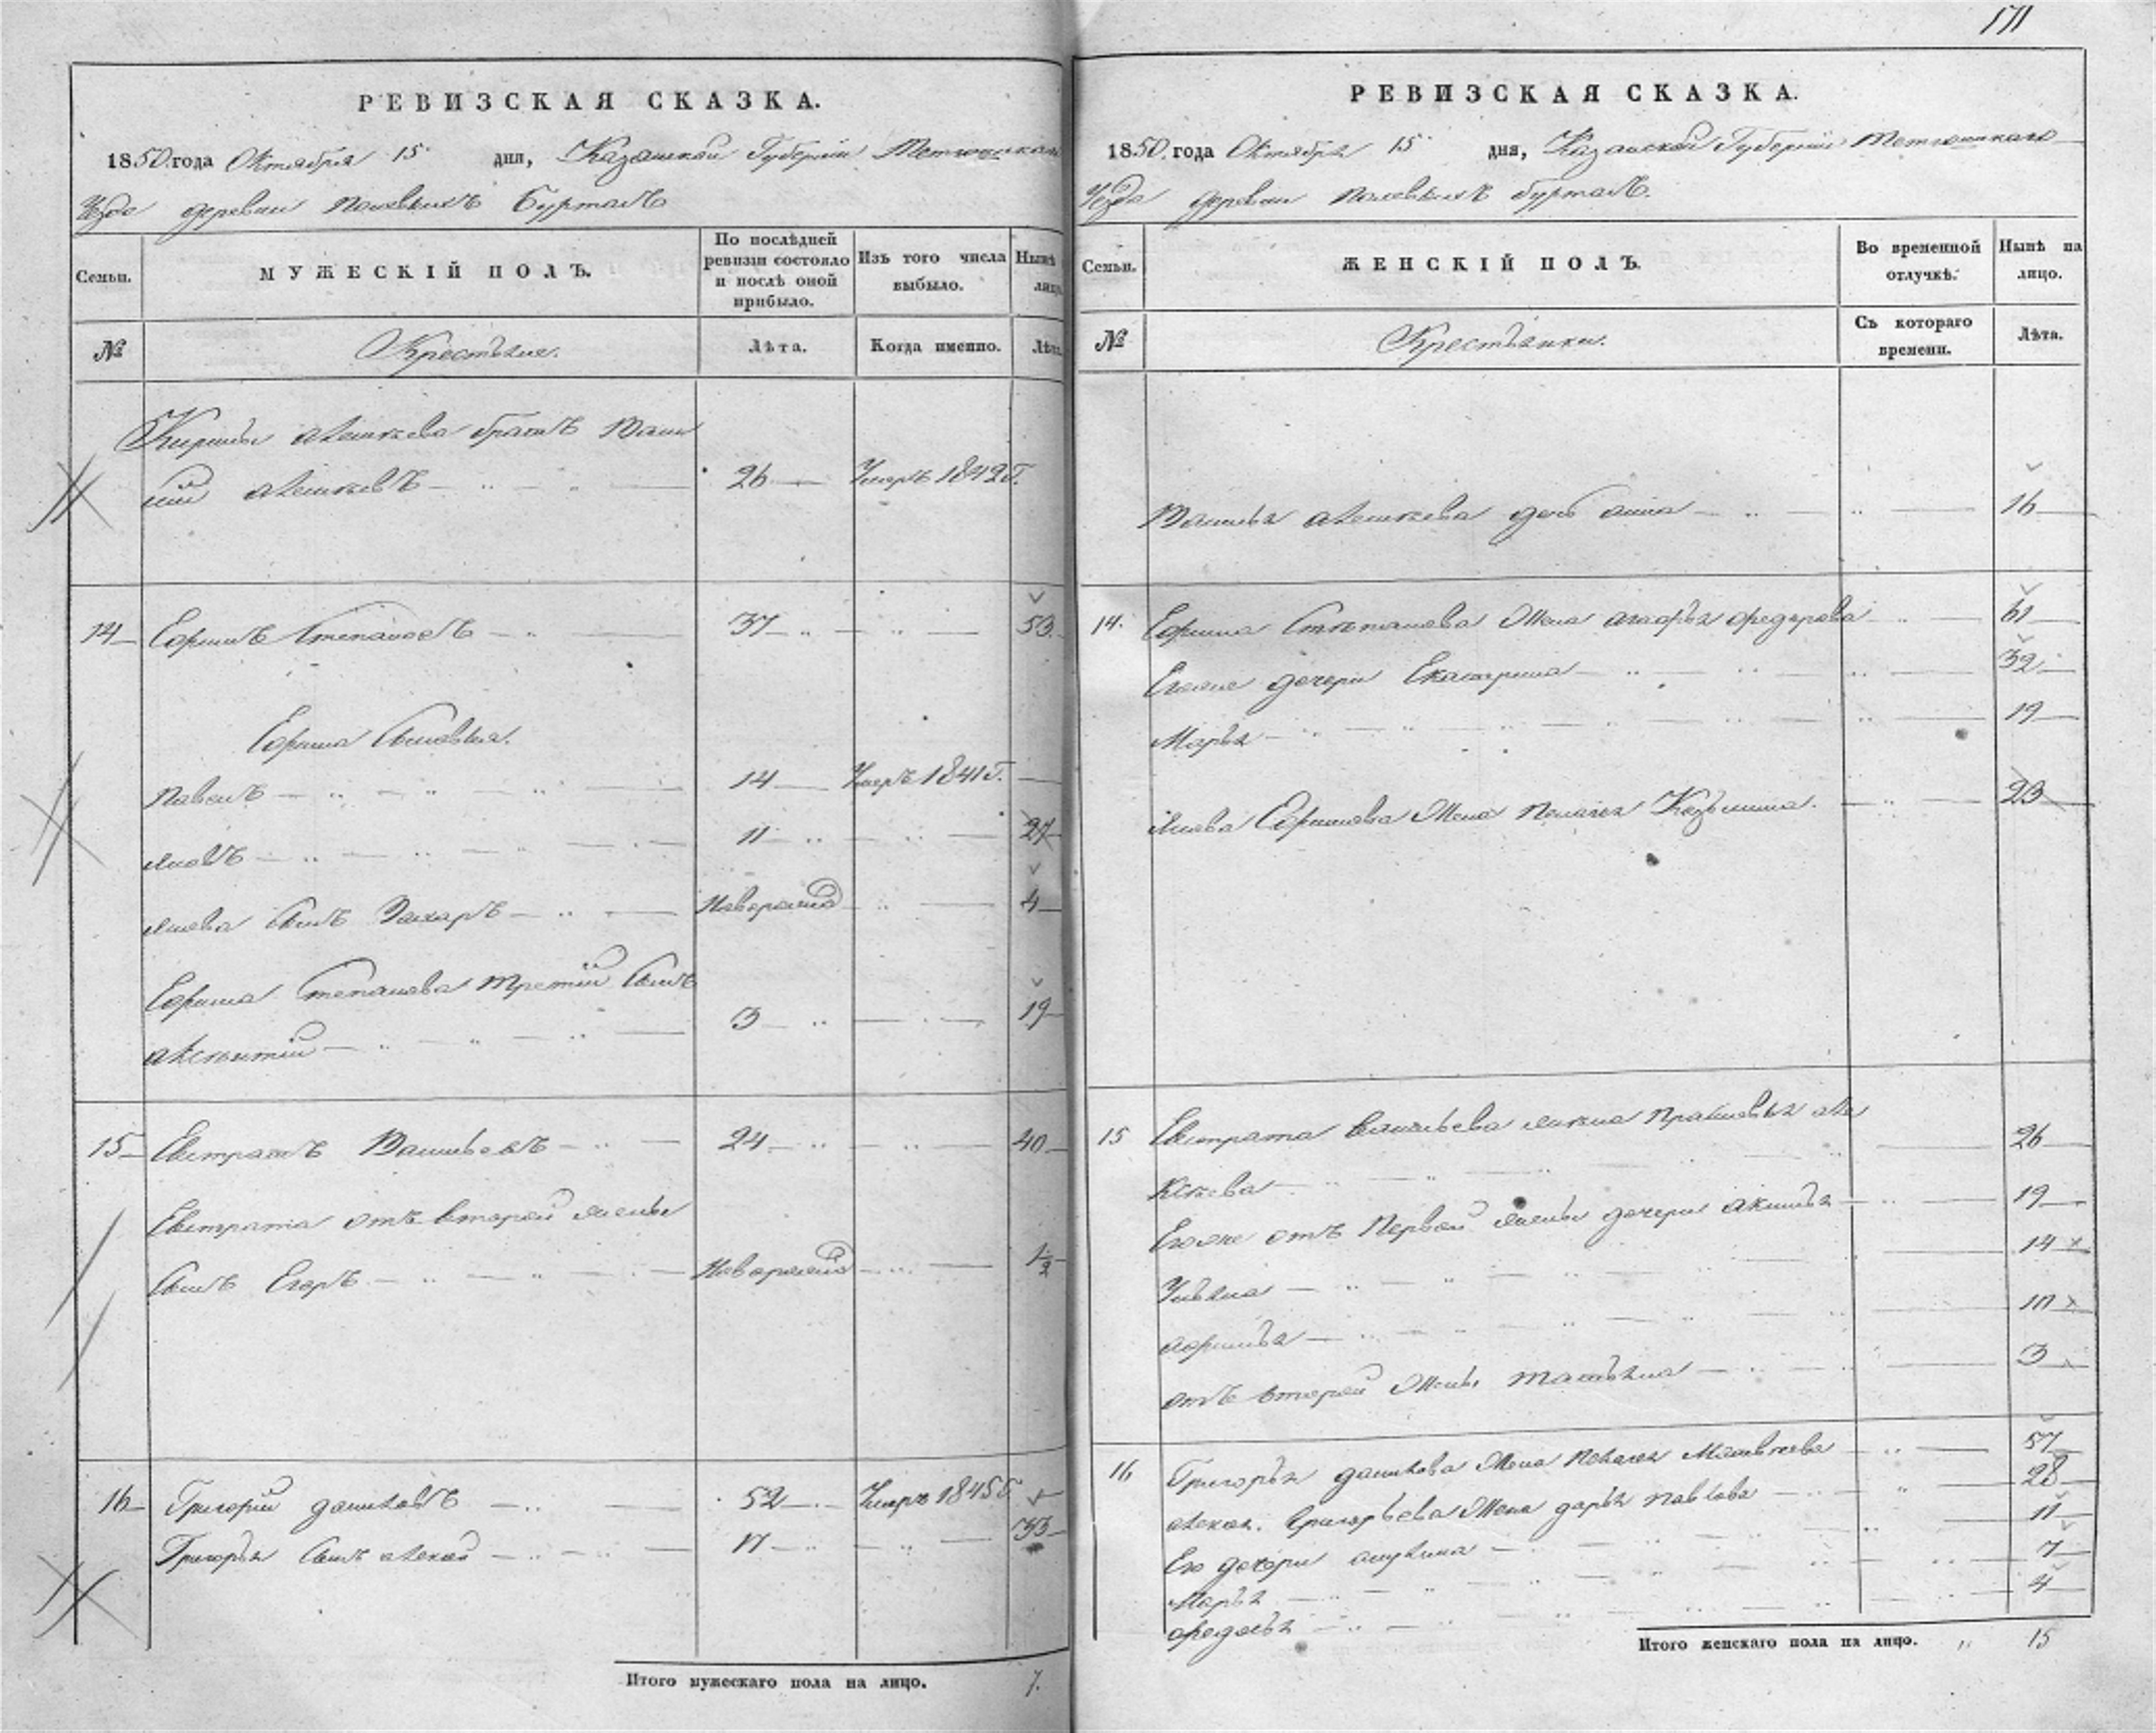 171
РЕВИЗСКАЯ СКАЗКА.
1850 года Октября 15 дня, Казанской Губернии Тетюшскаго
Уезда деревни Полевыхъ Буртасъ
Семьи. МУЖЕСКІЙ ПОЛЪ. По послѣдней ревизіи состояло и послѣ оной прибыло. Изъ того числа выбыло. Нынѣ лицо.
№ Крестьяне. Лѣта. Когда именно. Лѣта.
Кирилы Алексеева братъ Васи
лій Алексеевъ 26 Умеръ 1842 г.
14 Ефимъ Степановъ 37 53
Ефима Сыновья.
Павелъ 14 Умеръ 1841 г.
Яковъ 11 27
Якова Сынъ Захаръ Новорожд 4
Ефима Степанова третій Сынъ
3 19
15 Евстратъ Васильевъ 24 40
Евстрата отъ второй жены
Сынъ Егоръ Новорожд 1/2
16 Григорий Даниловъ 52 Умеръ 1845 г
Григорья Сынъ Алексей 17 33
Итого мужескаго пола на лицо. 7.
РЕВИЗСКАЯ СКАЗКА.
1850 года Октября 15 дня, Казанской Губернии Тетюшскаго
Уезда деревни Полевыхъ Буртасъ.
Семьи. ЖЕНСКІЙ ПОЛЪ. Во временной отлучкѣ. Нынѣ на лицо.
№ Крестьянки. Съ котораго времени. Лѣта.
Василья Алексеева дочь Анна 16
14. Ефима Степанова Жена Агафья Федорова 61
Егоже дочери Екатерина 32
Марья 19
Якова Ефимова Жена Пелагея Козьмина. 23
15 Евстрата Васильева жена Прасковья Але
ксеева 26
Егоже отъ Первой жены дочери Акулина 19
Ульяна 14
10
отъ второй Жены Татьяна 3
16 Григорья Данилова Жена Пелагея Матвеева 57
Алексея Григорьева Жена Дарья Павлова 28
Его дочери Акулина 11
Марья 7
Федосья 4
Итого женскаго пола на лицо. 15